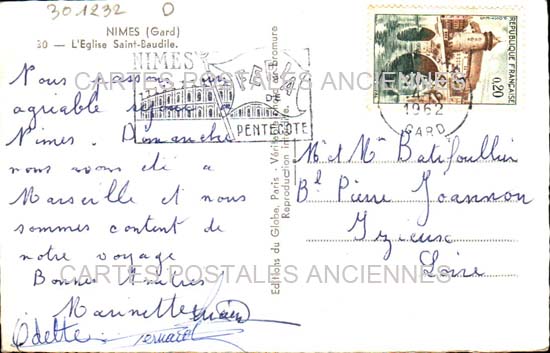 30.1232 D
NIMES (Gard)
30 — L'Eglise Saint-Baudile.
NIMES
FERIA
DE
PENTECOTE
REPUBLIQUE FRANÇAISE
0,20
1962
GARD
Nous passons un
agriable sejour a
Nimes. Dimanche
nous avons été a
Marseille et nous
sommes content de
notre voyage
Bonnes Amitiés
Marinette
Odette
Editions du Globe, Paris - Véritable photo au bromure
Reproduction interdite.
Mr et Mme Batifoullier
Bl Pierre Joannon
Izieux
Loire
CARTES POSTALES ANCIENNES
CARTES POSTALES ANCIENNES